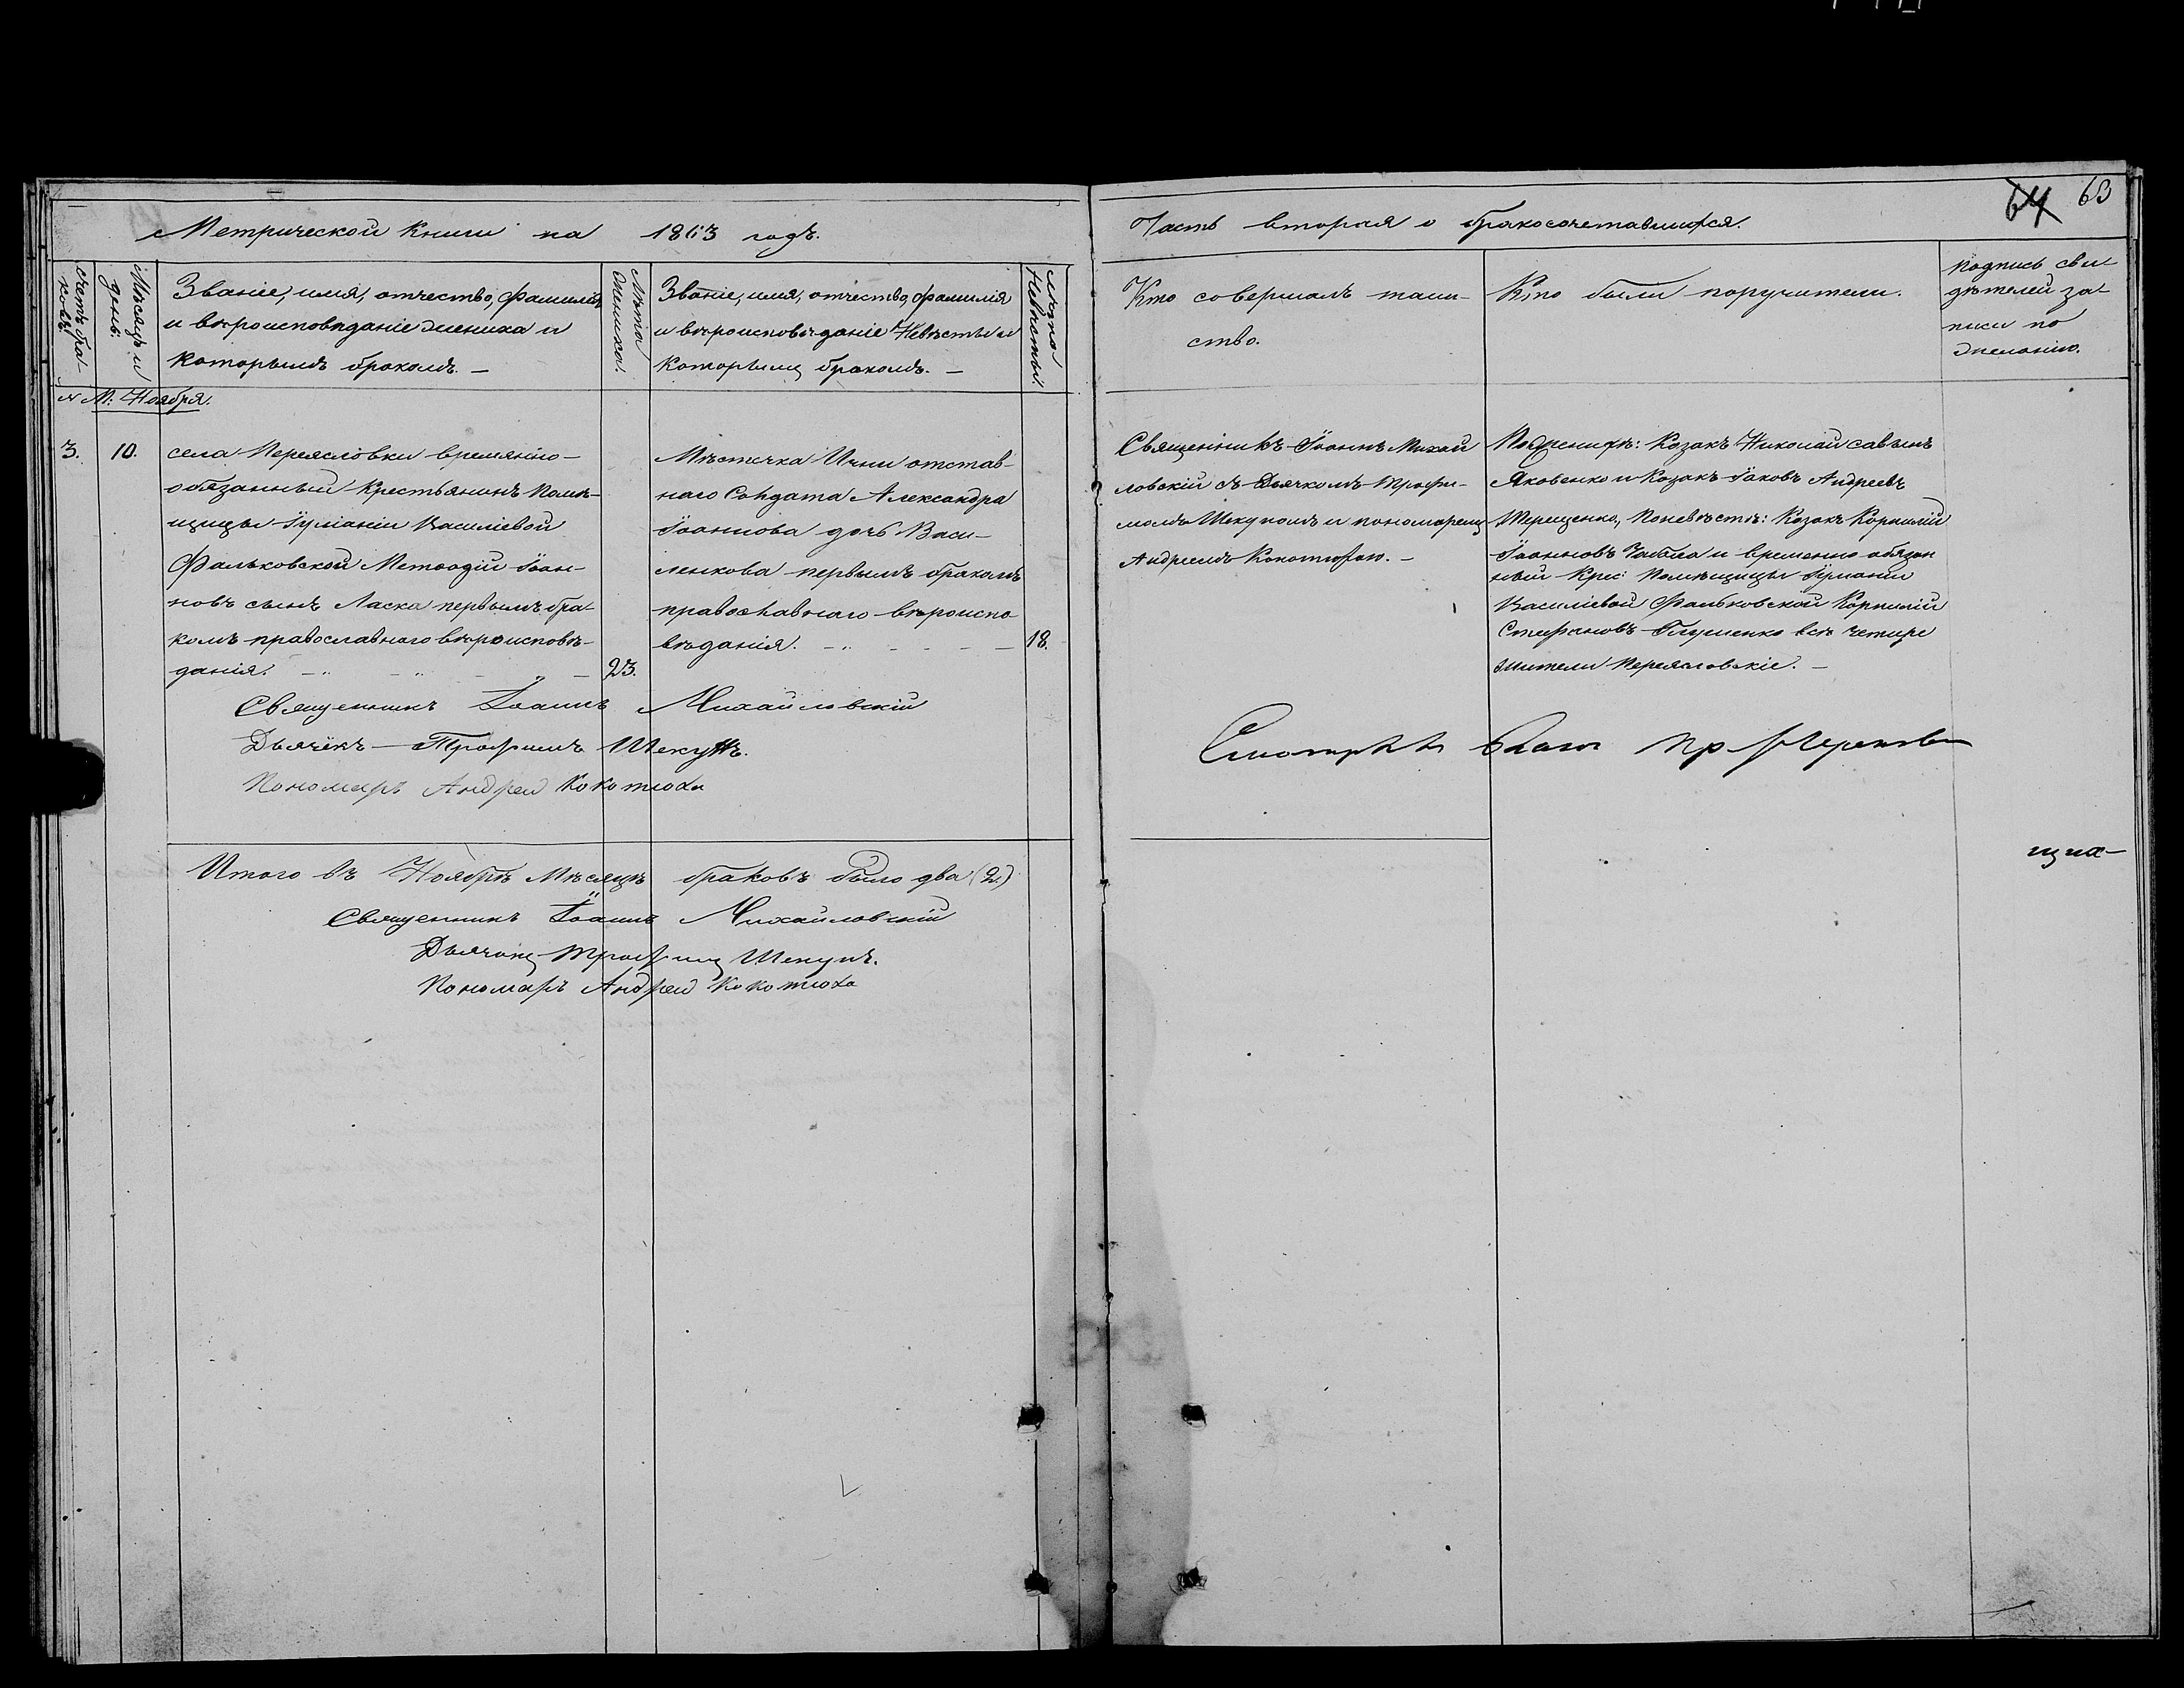 64 63
Метрической Книги на 1863 годъ.
Часть вторая о бракосочетавшихся.
Счетъ бра-
ковъ.
Мѣсяцъ и
день.
Званіе, имя, отчество, фамилія
и вѣроисповѣданіе жениха и
которымъ бракомъ. —
Лѣта
жениха.
Званіе, имя, отчество, фамилія
и вѣроисповѣданіе Невѣсты и
которымъ бракомъ. —
Лѣта
Невѣсты.
Кто совершалъ таин-
ство.
Кто были поручители.
подпись сви-
дѣтелей за-
писи по
желанію.
М: Ноября.
3. 10.
села Переясловки временно-
обязанный крестьянинъ Помѣ-
щицы Іуліаніи Василіевой
Фальковской Метоодій Іоан-
новъ сынъ Ласка первымъ бра-
комъ православнаго вѣроисповѣ-
данія. 23.
Мѣстечка Ични отстав-
наго Солдата Александра
Іоаннова дочь Васи-
ленкова первымъ бракомъ
православнаго вѣроиспо-
вѣданія. 18.
Священникъ Іоаннъ Михай
ловскій съ Дьячкомъ Трофи-
момъ Шекуномъ и пономаремъ
Андреемъ Кокотюхою. —
По женихѣ: Козакъ Николай савинъ
Яковенко и Козакъ Іаковъ Андреевъ
Терещенко, По невѣстѣ: Козакъ Корнилій
Іоанновъ и временно обязан
ный Крес: Помѣщицы Іуліаніи
Василіевой Фальковской Корнилій
Стефановъ всѣ четыре
жители Переясловскіе. —
Священникъ Іоаннъ Михайловскій
Дьячекъ Трофимъ Шекунъ.
Пономарь Андрей Кокотюха
Смотрѣлъ
Итого въ Ноябрѣ Мѣсяцѣ браковъ было два (2)
Священникъ Іоаннъ Михайловскій
Дьячокъ Трофимъ Шекунъ.
Пономарь Андрей Кокотюха